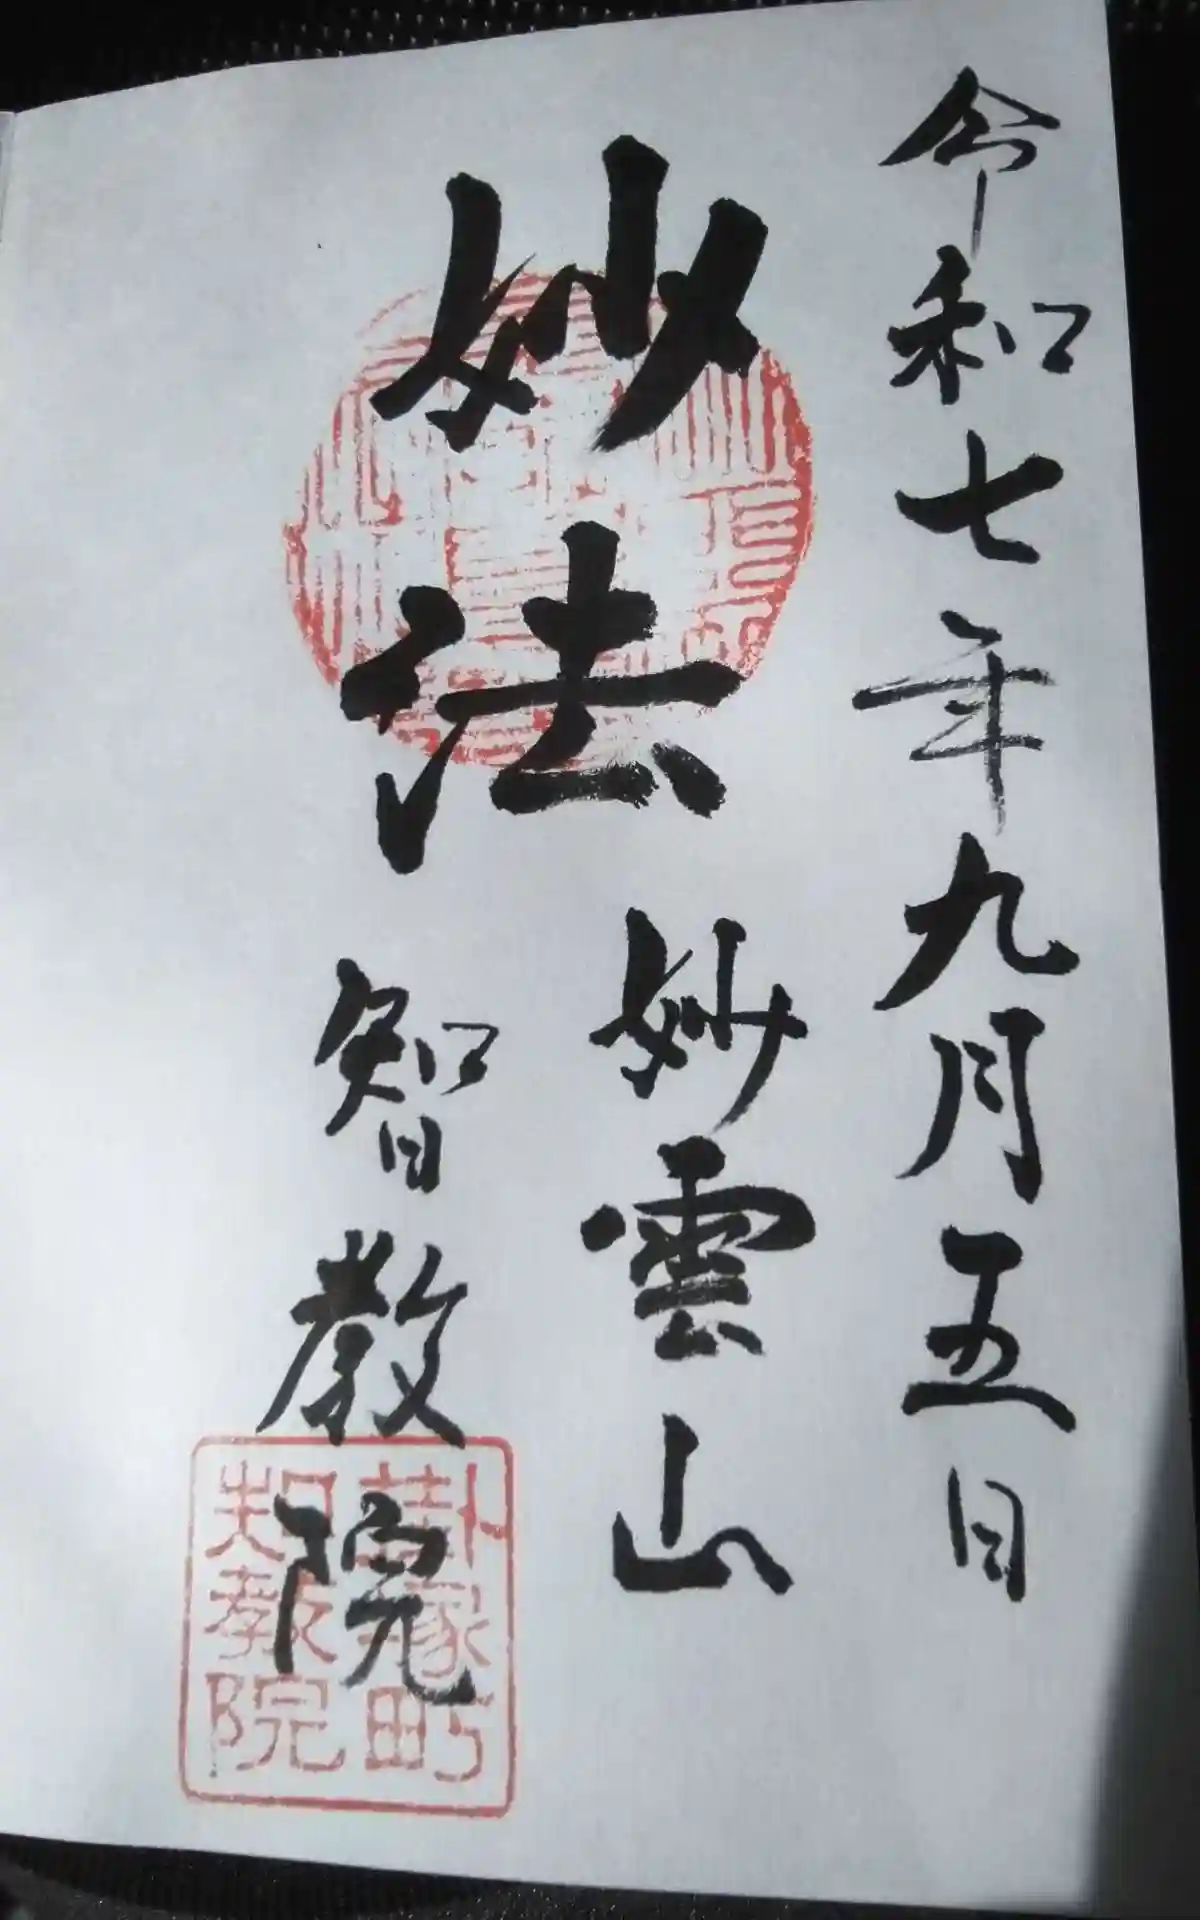 令和七年九月五日
妙法
妙雲山
智教院
掛塚町
智教院